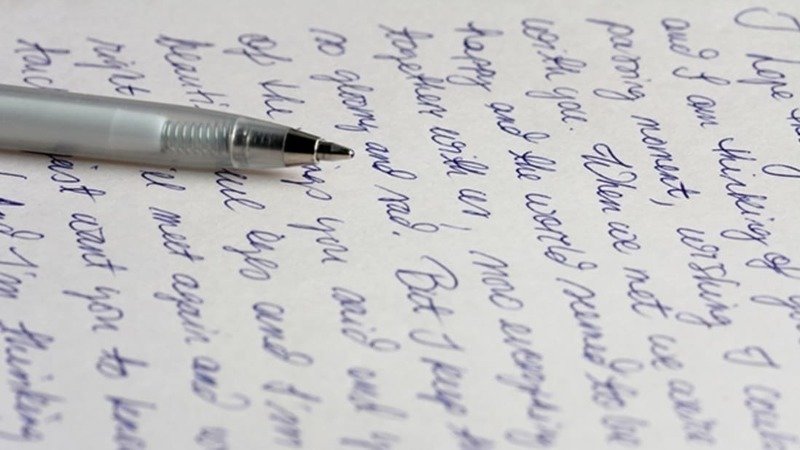 I hope
and I am thinking of
passing moment, wishing I
with you. When we not we were
happy and the world semed to be
together with us, now everything
so gloomy and sad. But I keep
of the you said and
eyes and I'm
right meet again and
want you to
And I'm thinking